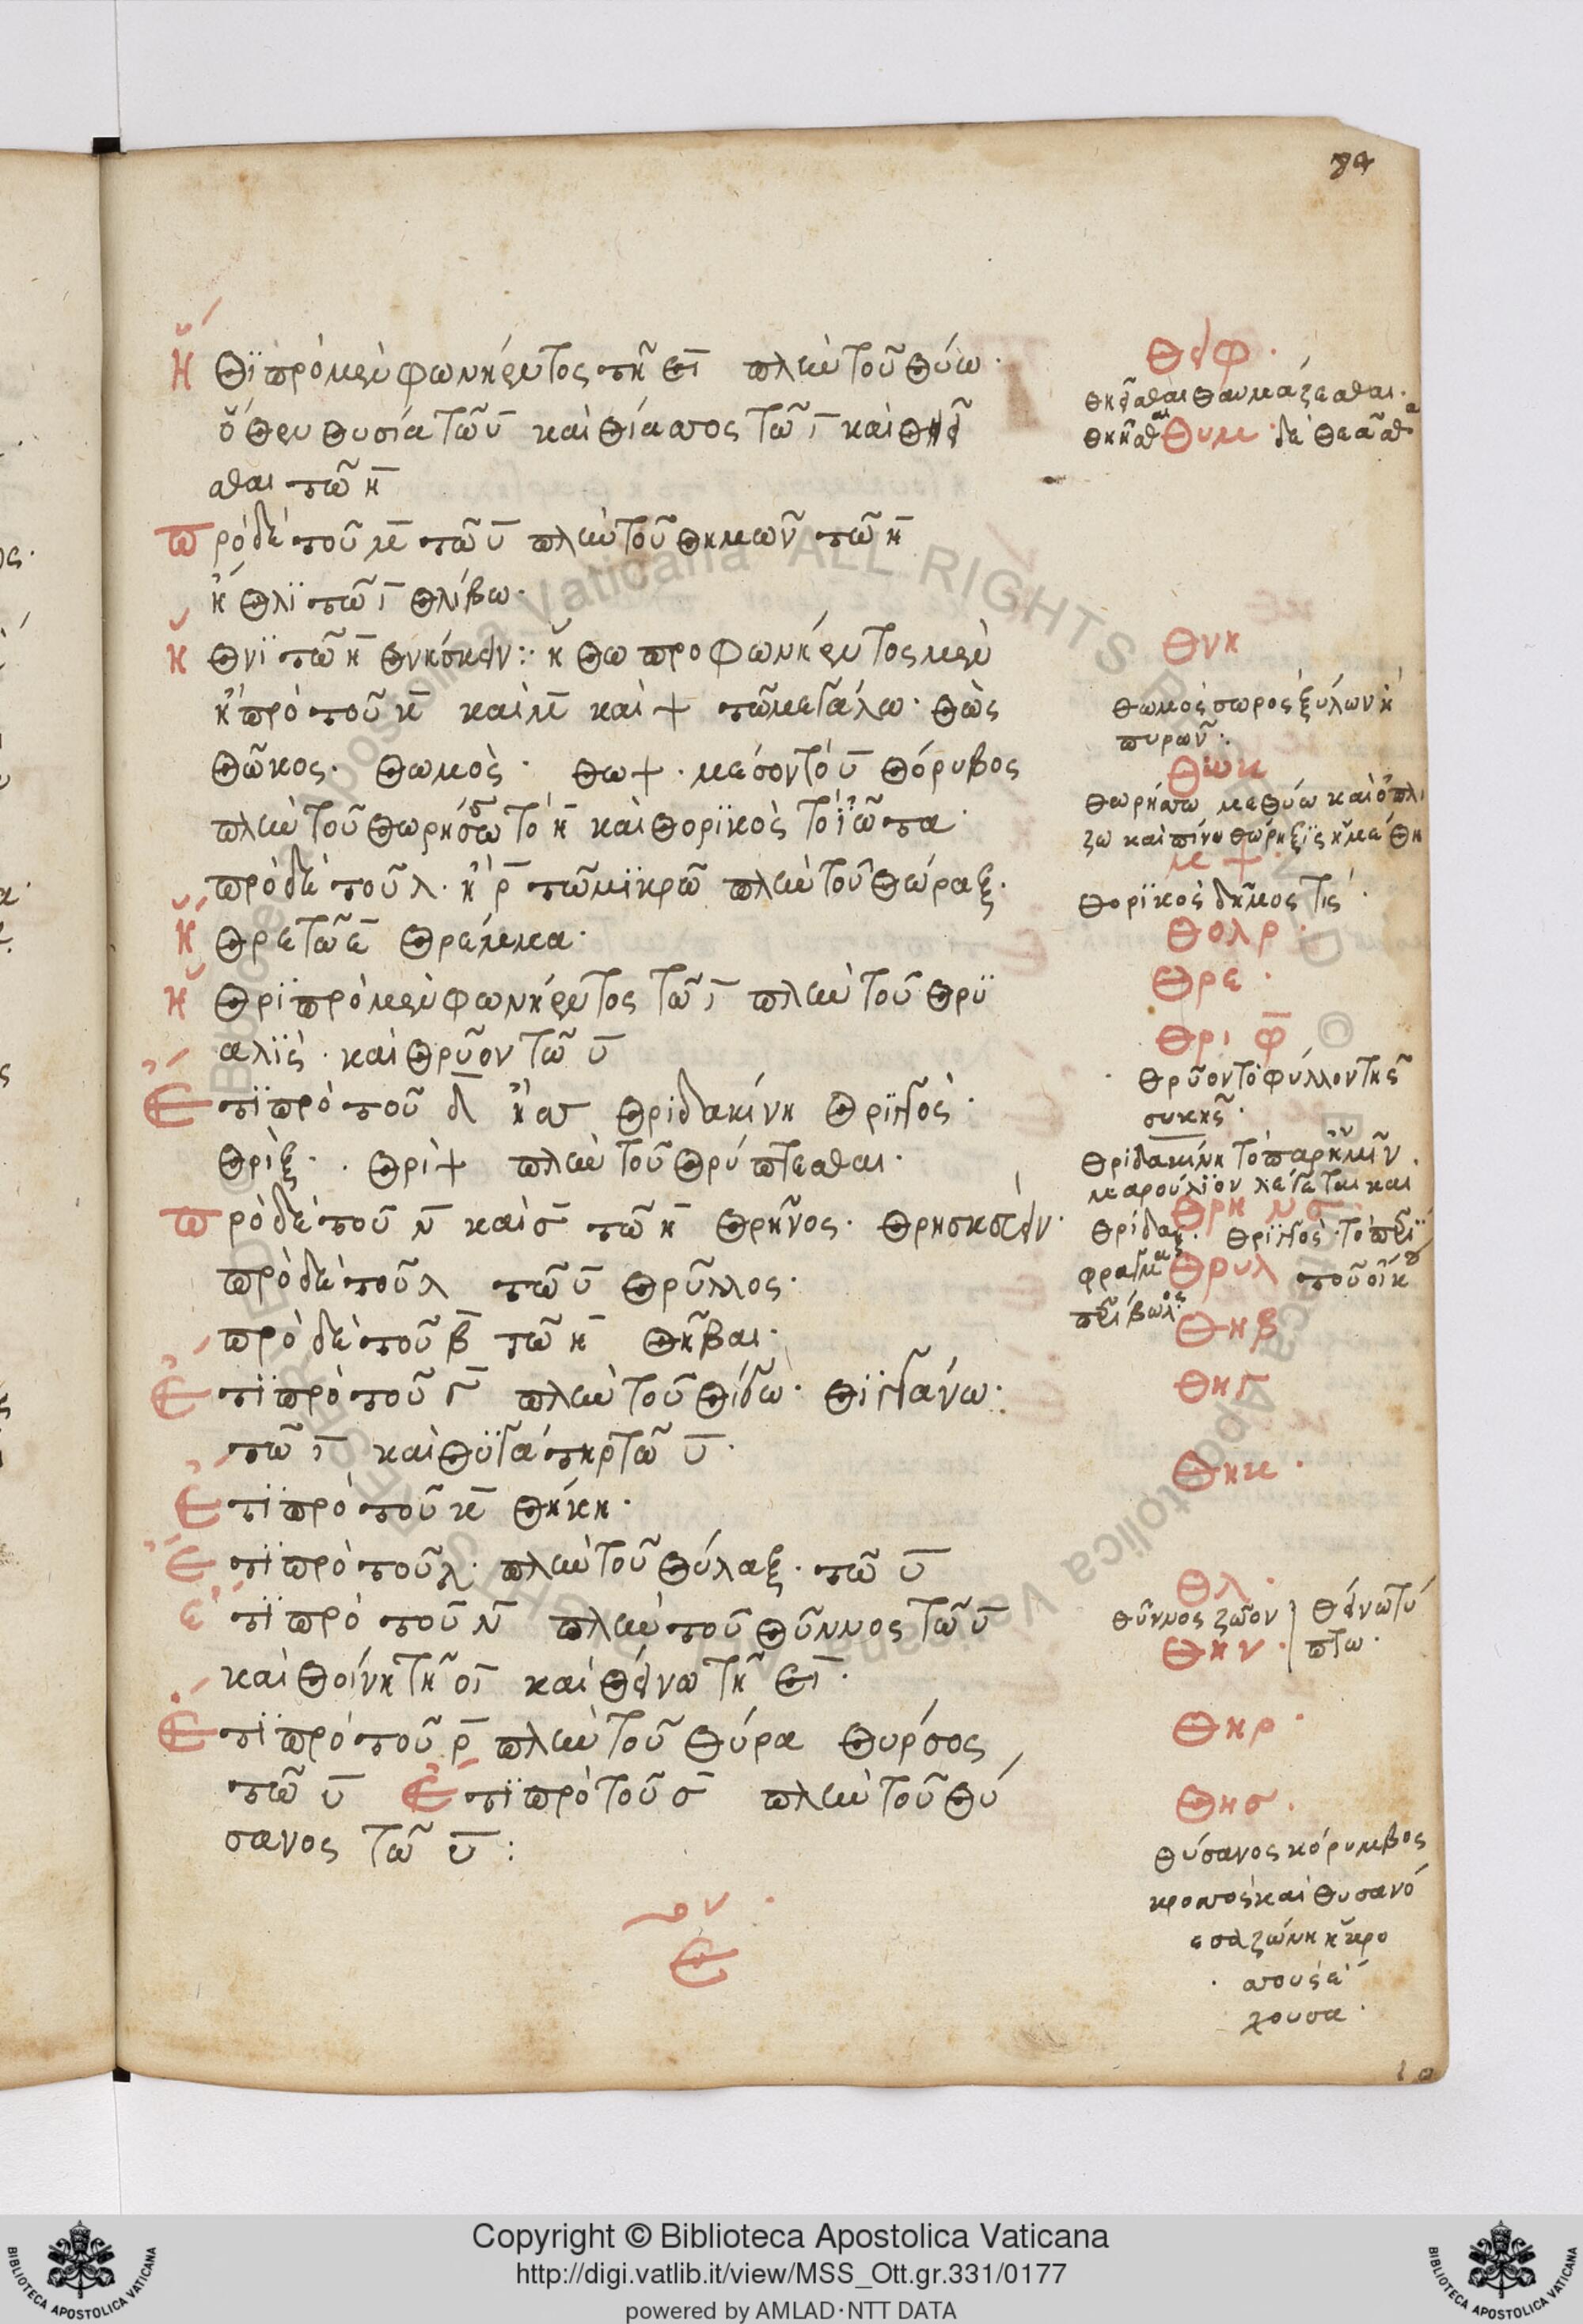 Ἡ Θϊ πρὸ μὲν φωνήεντος τῆ ει πλὴν τοῦ θύω·
ὅθεν θυσία τῶ υ καὶ θίασος τῶ ι καὶ
σθαι τῶ η
πρὸ δὲ τοῦ μ τῶ υ πλὴν τοῦ θημων τῶ η
ἡ θλϊ τῶ ι θλίβω·
Ἡ θνϊ τῶ η θνήσκειν: ἡ θω προ φωνήεντος μὲν
ἢ πρὸ τοῦ κ καὶ μ καὶ + τῶ μεγάλω· θὼς
θῶκος· θωμὸς· θω+· μεσοντό υ θόρυβος
πλὴν τοῦ θωρήσσω τό η καὶ θορϊκὸς τὸ ἰῶτα·
πρὸ δὲ τοῦ λ· ἢ ρ τῶ μϊκρῶ πλὴν τοῦ θώραξ·
Ἡ θρε τῶ ε θρέμμα·
Ἡ θρϊ πρὸ μὲν φωνήεντος τῶ ι πλὴν τοῦ θρϋ
αλϊς· καὶ θρῦον τῶ υ
Ἐπϊ πρὸ τοῦ δ ἢ θριδακίνη θριγγὸς·
θρὶξ· θρὶ+ πλὴν τοῦ θρύπτεσθαι·
πρὸ δὲ τοῦ ν καὶ σ τῶ η θρῆνος·
πρὸ δὲ τοῦ λ τῶ υ θρῦλλος·
πρὸ δὲ τοῦ β τῶ η θῆβαι·
Ἐπϊ πρὸ τοῦ γ πλὴν τοῦ θίγω· θιγγάνω·
τῶ ι καὶ θϋγάτηρ τῶ υ·
Ἐπϊ πρὸ τοῦ κ θήκη·
Ἐπϊ πρὸ τοῦ λ· πλὴν τοῦ θύλαξ· τῶ υ
ἐπϊ πρὸ τοῦ ν πλὴν τοῦ θῦννος τῶ υ
καὶ θοίνη τῆ οι καὶ θείνω τῆ ει·
Ἐπϊ πρὸ τοῦ ρ πλὴν τοῦ θύρα θυρσος
τῶ υ Ἐπϊ πρὸ τοῦ σ πλὴν τοῦ θύ
σανος τῶ υ:
Θειφ·
θηεῖσθαι θαυμάζεσθαι·
Θυμ· δὲ θεᾶσθαι
Θνη
θωμὸς σωρὸς ξύλων ἢ
πυρων:
Θωκ
θωρήσσω μεθύω καὶ ὁπλί
ζω καὶ πίνω
μ +·
θορϊκὸς δῆμος τις·
Θολρ·
Θρε·
Θρι φ
θρῦον τὸ φύλλον τῆς
συκῆς·
θριδακίνη τὸ παρ ἡμῖν
μαρούλϊον λέγεται και
Θρη ν σ·
θρίδαξ· θρϊγγὸς·
Θρυλ τοῦ οἴκου
Θηβ
Θηγ
Θηκ·
Θλ·
θῦννος ζῶον θείνω τύ
πτω·
Θην·
Θηρ·
Θησ·
θύσανος κόρυμβος
κροσσὸς καὶ θυσανό
εσσα ζώνη ἡ κρο
σσοὺς ἔ
χουσα·
Copyright © Biblioteca Apostolica Vaticana
http://digi.vatlib.it/view/MSS_Ott.gr.331/0177
powered by AMLAD·NTT DATA
BIBLIOTECA APOSTOLICA VATICANA
BIBLIOTECA APOSTOLICA VATICANA